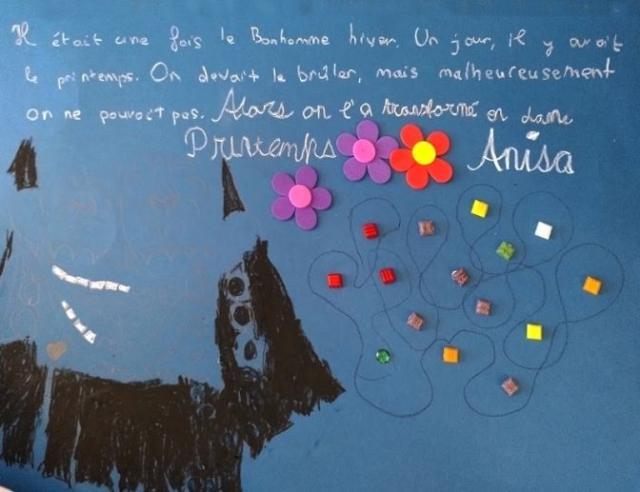 Il était une fois le Bonhomme hiver. Un jour, il y avait
le printemps. On devait le brûler, mais malheureusement
on ne pouvait pas. Alors on l'a transformé en dame
Printemps Anisa